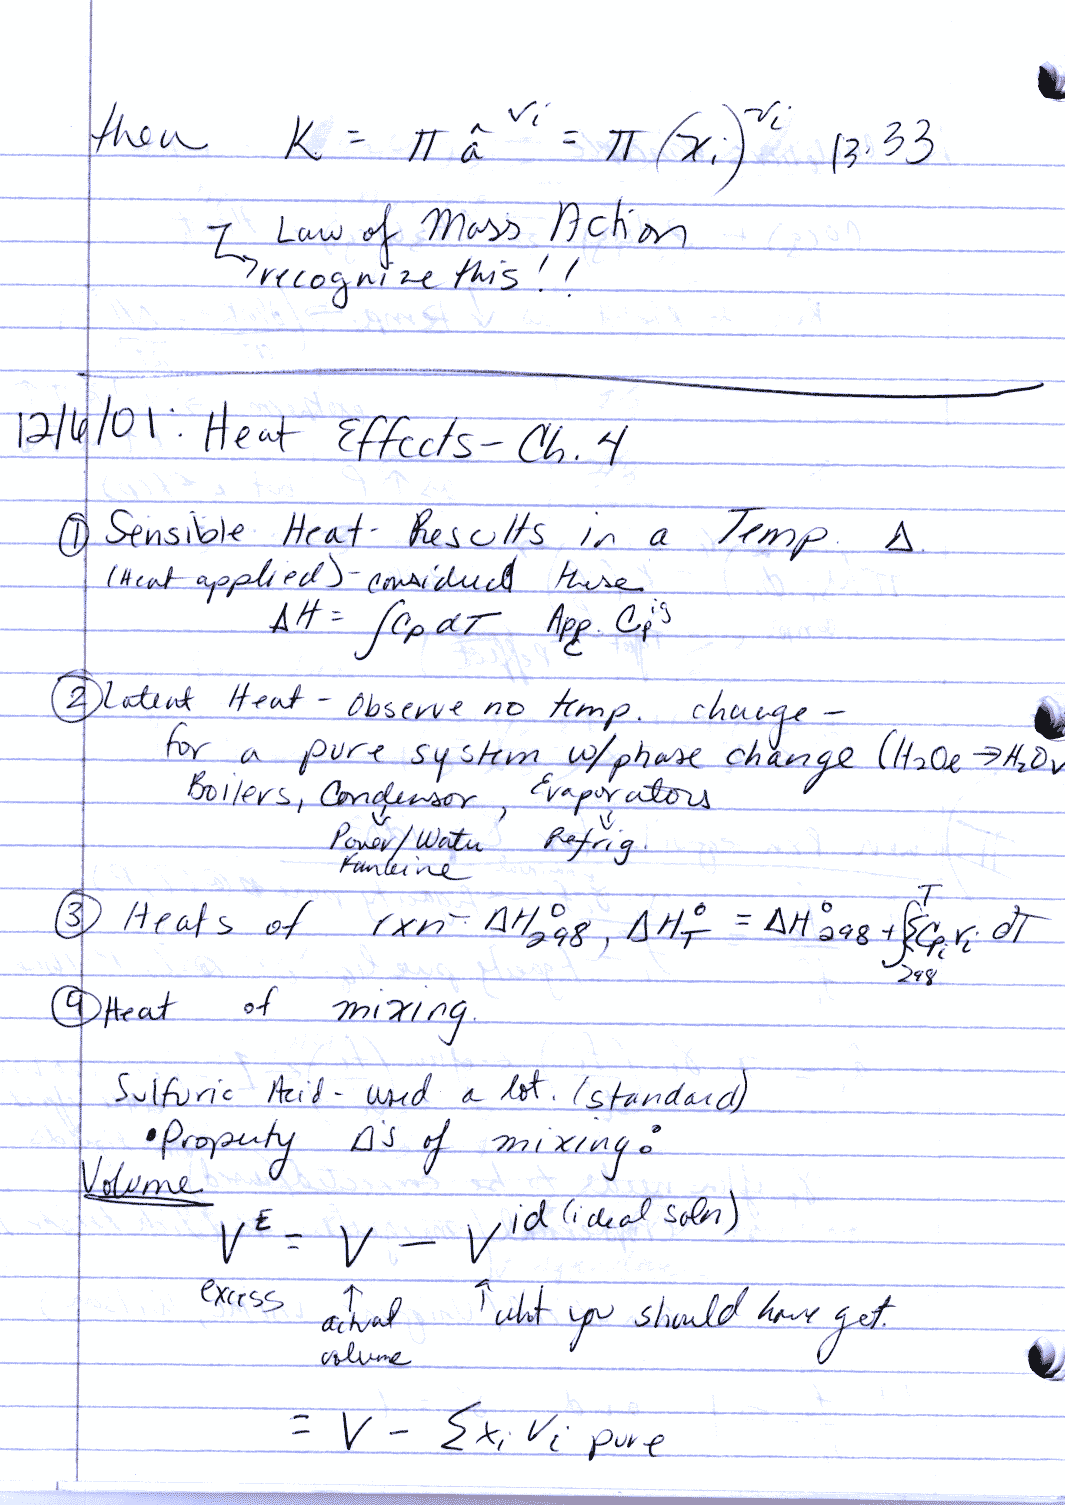 then K = π â^νi = π (xi)^νi 13.33
Law of Mass Action
recognize this!!
12/6/01: Heat Effects - Ch. 4
① Sensible Heat - Results in a Temp. Δ.
(Heat applied) - considered these
ΔH = ∫Cp dT App. Cp^ig
② Latent Heat - Observe no temp. change -
for a pure system w/ phase change (H2Oℓ → H2Ov
Boilers, Condensor, Evaporators
Power/Water Refrig.
Rankine
③ Heats of rxn - ΔH°298, ΔH°T = ΔH°298 + ∫298^T ΣCpi νi dT
④ Heat of mixing.
Sulfuric Acid - used a lot. (standard)
• Property Δ's of mixing:
Volume
V^E = V - V^id (ideal soln)
excess ↑ ↑ what you should have get.
actual
volume
= V - Σxi Vi pure